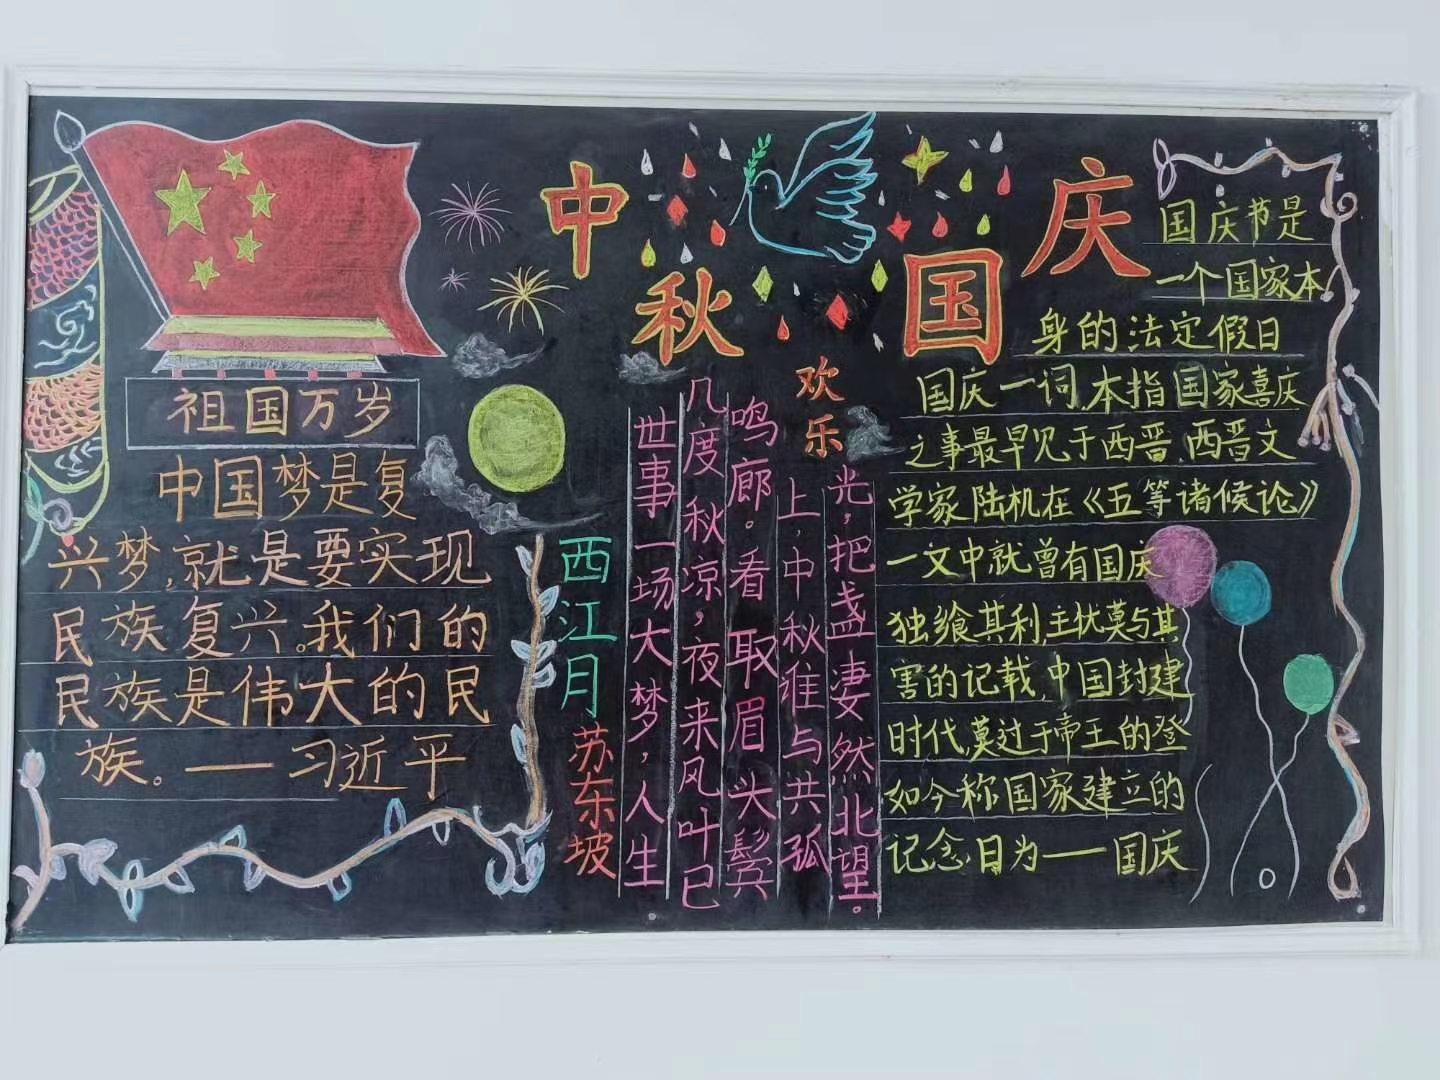 中秋国庆
欢乐
祖国万岁
中国梦是复
兴梦,就是要实现
民族复兴。我们的
民族是伟大的民
族。——习近平
西江月
苏东坡
世事一场大梦,人生
几度秋凉,夜来风叶已
鸣廊。看取眉头鬓
上,中秋谁与共孤
光,把盏凄然北望。
国庆节是
一个国家本
身的法定假日
国庆一词,本指国家喜庆
之事最早见于西晋,西晋文
学家陆机在《五等诸候论》
一文中就曾有国庆
独飨其利,主忧莫与其
害的记载,中国封建
时代,莫过于帝王的登
如今称国家建立的
记念日为——国庆